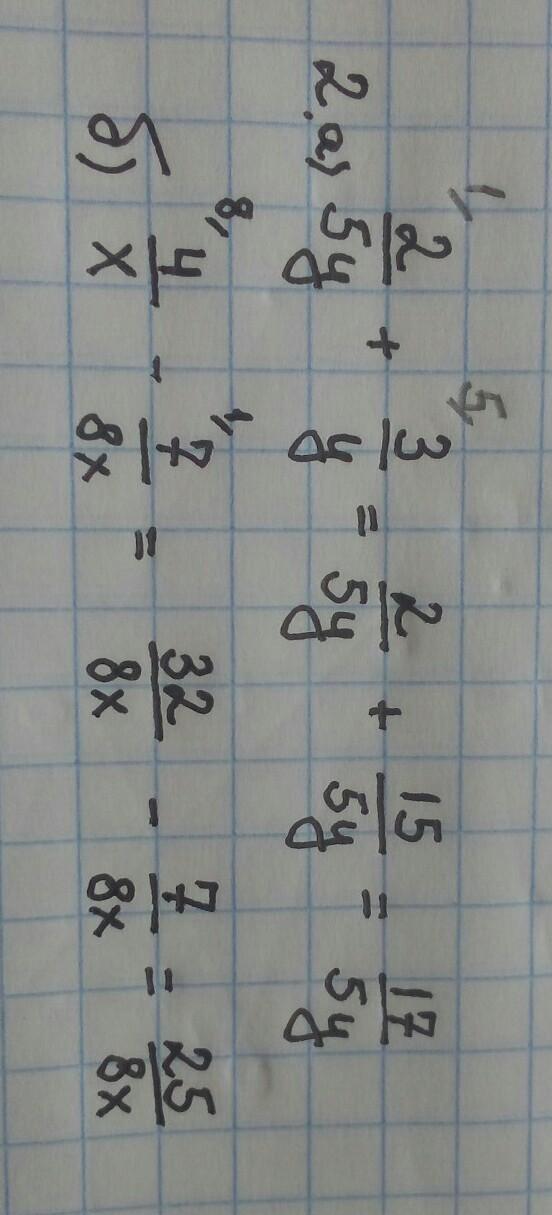 2.а) 2/5y 1, + 3/y 5, = 2/5y + 15/5y = 17/5y
б) 4/x 8, - 7/8x 1, = 32/8x - 7/8x = 25/8x